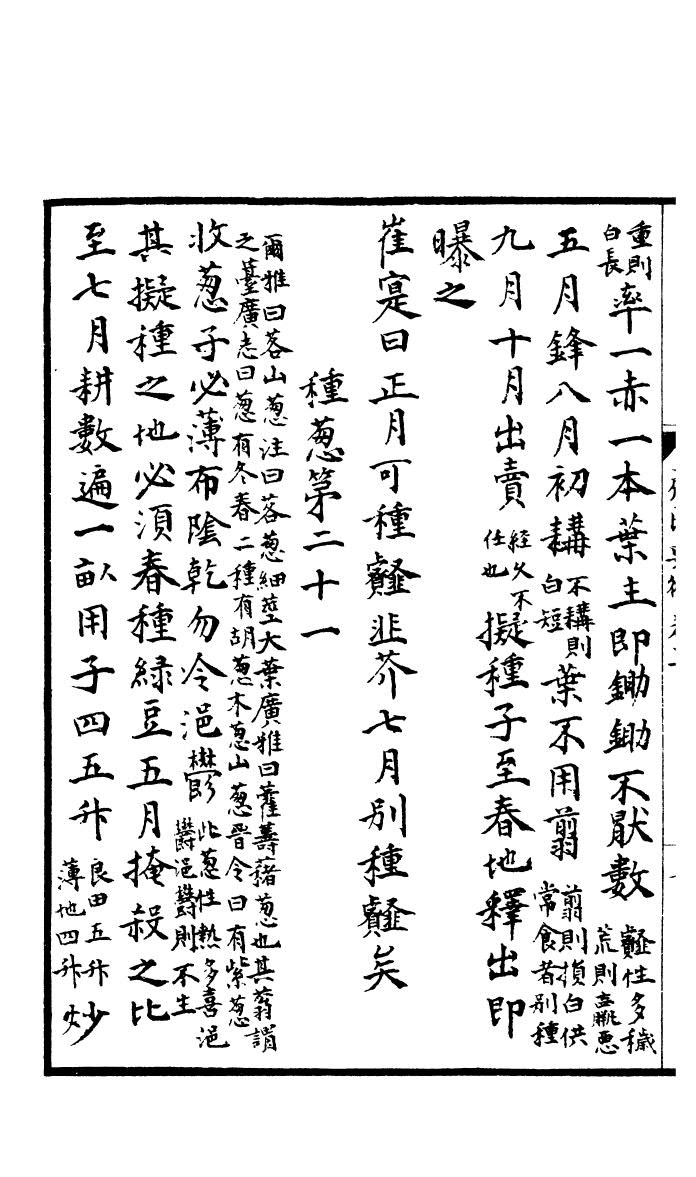 重則
白長
率一赤一本葉主即鋤鋤不猒數
䪥性多穢
荒則羸惡
五月鋒八月初耩
不耩則
白短
葉不用翦
翦則損白供
常食者別種
九月十月出賣
經久不
任也
擬種子至春地釋出即
曝之
崔寔曰正月可種䪥韭芥七月別種䪥矣
種葱第二十一
爾雅曰茖山葱注曰茖葱細莖大葉廣雅曰藿薵藸葱也其蓊謂
之薹廣志曰葱有冬春二種有胡葱木葱山葱晉令曰有紫葱
收葱子必薄布陰乾勿令浥鬱
此葱性熱多喜浥
鬱浥鬱則不生
其擬種之地必須春種綠豆五月掩殺之比
至七月耕數遍一畝用子四五升
良田五升
薄地四升
炒